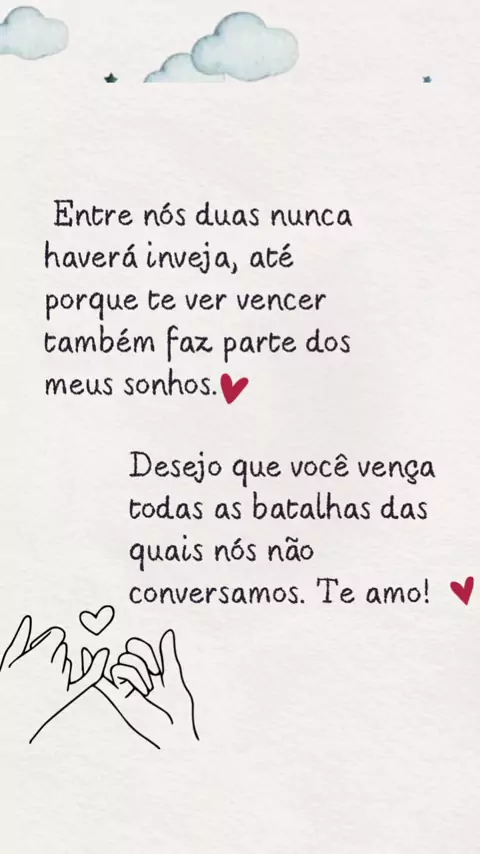 Entre nós duas nunca
haverá inveja, até
porque te ver vencer
também faz parte dos
meus sonhos.
Desejo que você vença
todas as batalhas das
quais nós não
conversamos. Te amo!